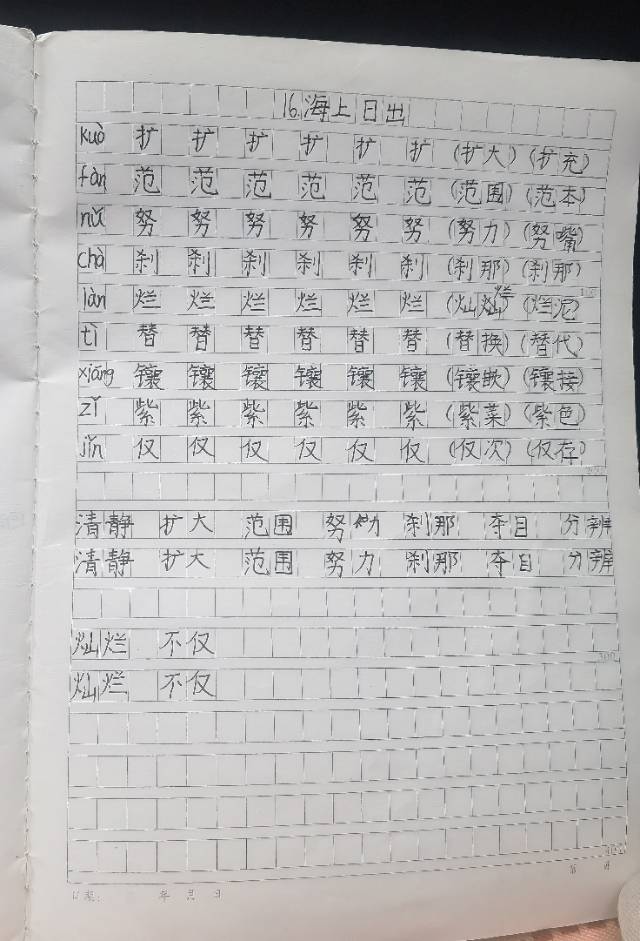 16.海上日出
kuò 扩 扩 扩 扩 扩 扩 (扩大) (扩充)
fàn 范 范 范 范 范 范 (范围) (范本)
nǔ 努 努 努 努 努 努 (努力) (努嘴)
chà 刹 刹 刹 刹 刹 刹 (刹那) (刹那)
làn 烂 烂 烂 烂 烂 烂 (灿烂) (烂泥)
tì 替 替 替 替 替 替 (替换) (替代)
xiāng 镶 镶 镶 镶 镶 镶 (镶嵌) (镶接)
zǐ 紫 紫 紫 紫 紫 紫 (紫菜) (紫色)
jǐn 仅 仅 仅 仅 仅 仅 (仅次) (仅存)
清静 扩大 范围 努力 刹那 夺目 分辨
清静 扩大 范围 努力 刹那 夺目 分辨
灿烂 不仅
灿烂 不仅
年 月 日